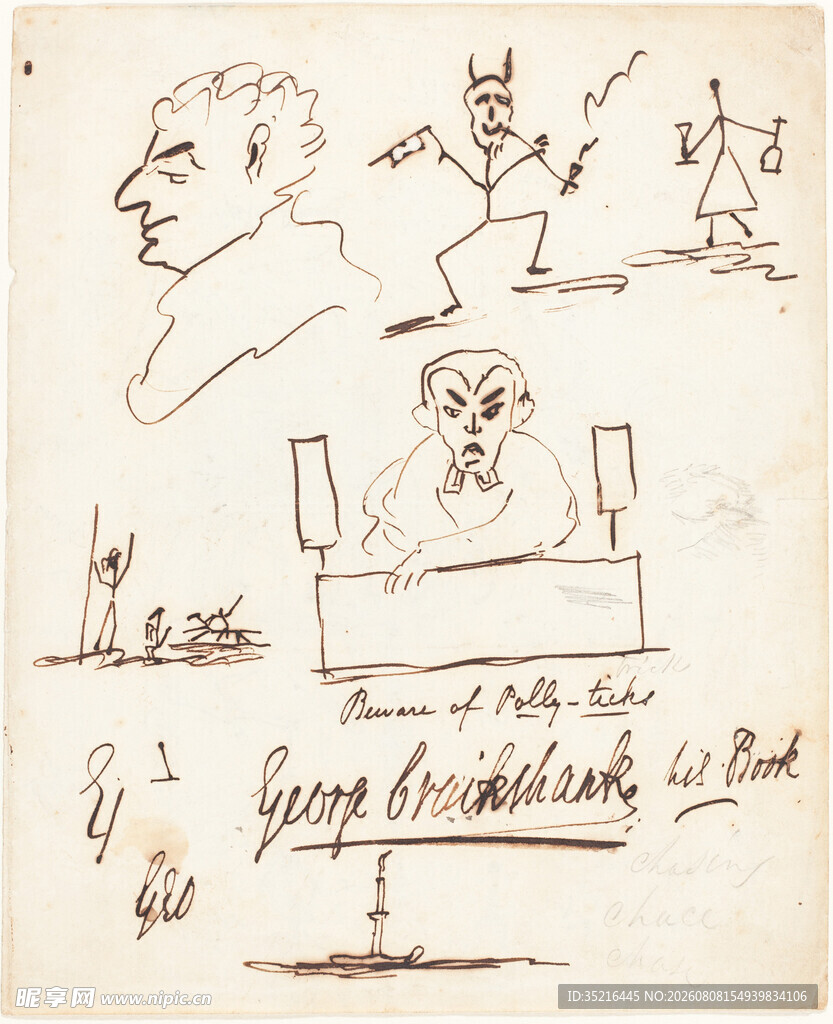 Beware of Polly-ticks
George Cruikshank his Book
GEO
chasing
chace
chase
昵享网 www.nipic.cn
ID:35216445 NO:20260808154939834106